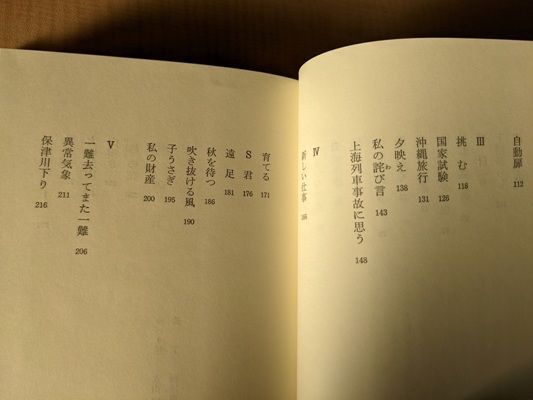 自動扉 112
III
挑む 118
国家試験 126
沖縄旅行 131
夕映え 138
私の詫び言 143
わ
上海列車事故に思う 148
IV
新しい仕事
育てる 171
S君 176
遠足 181
秋を待つ 186
吹き抜ける風 190
子うさぎ 195
私の財産 200
V
一難去ってまた一難 206
異常気象 211
保津川下り 216